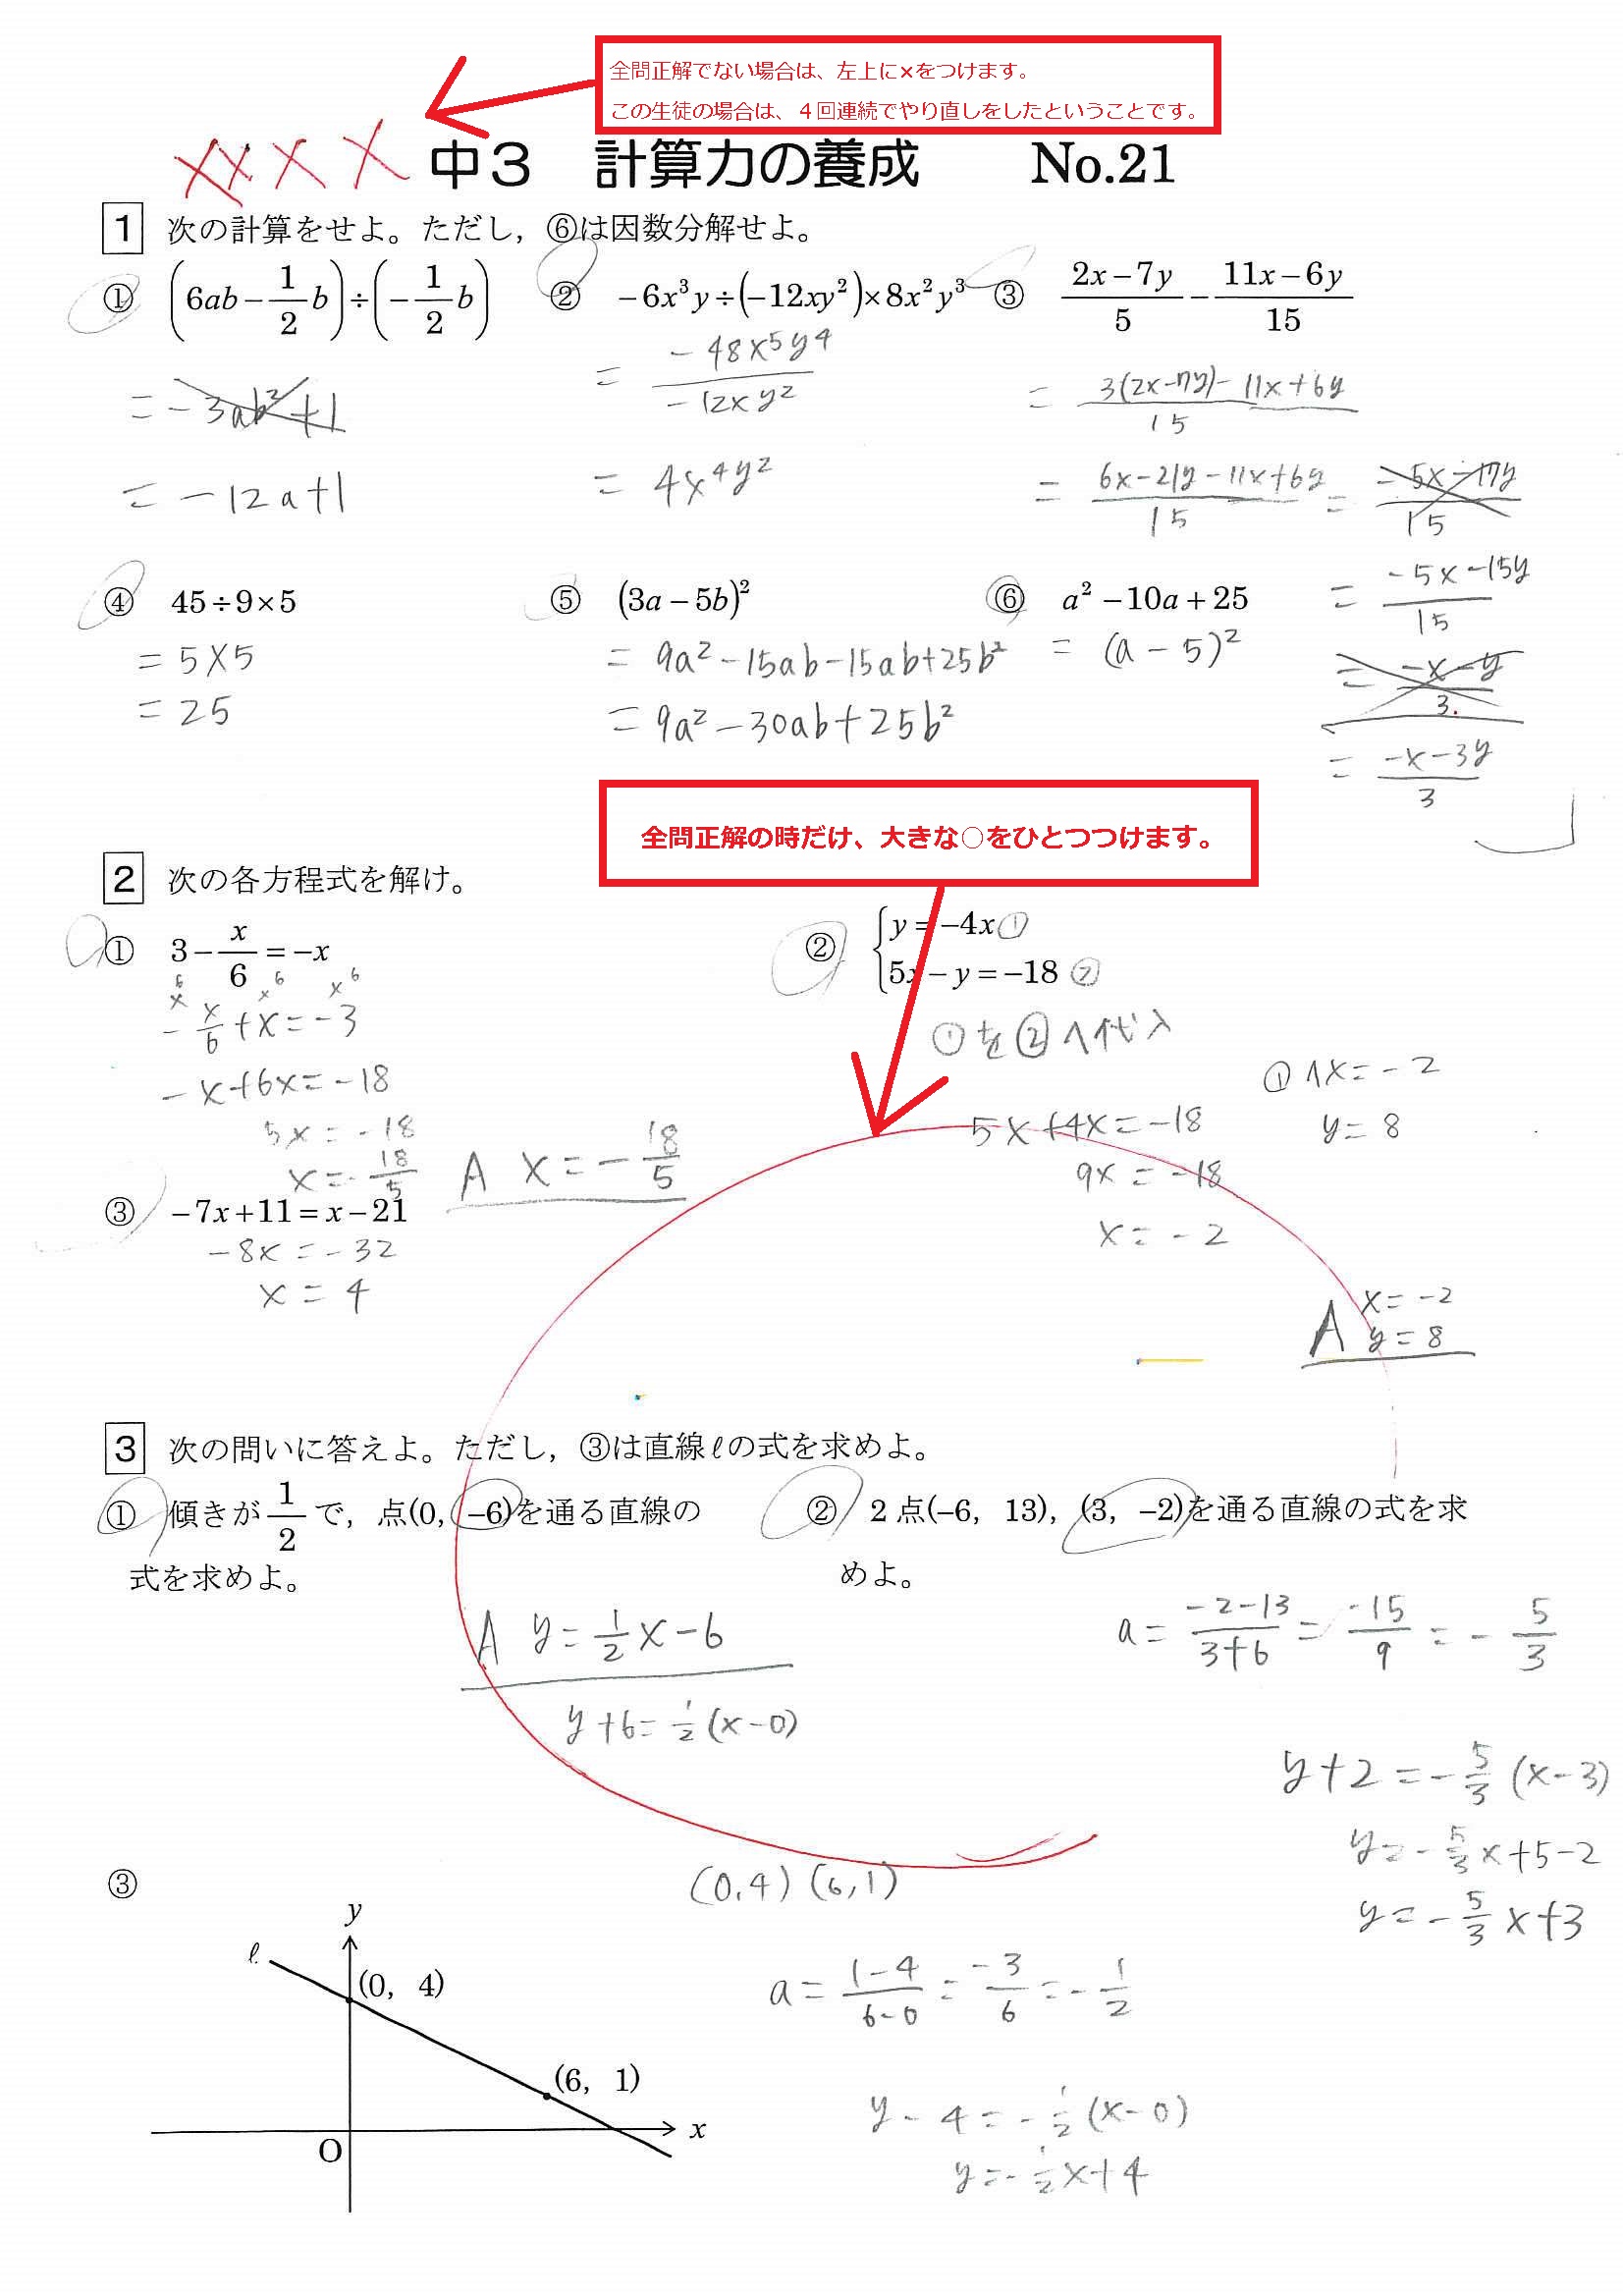 全問正解でない場合は、左上に×をつけます。
この生徒の場合は、４回連続でやり直しをしたということです。
×××× 中３　計算力の養成　No.21
1 次の計算をせよ。ただし，⑥は因数分解せよ。
① (6ab − 1/2 b) ÷ (− 1/2 b)
= −3ab²+1
= −12a+1
② −6x³y÷(−12xy²)×8x²y³
= −48x⁵y⁴/−12xy²
= 4x⁴y²
③ (2x−7y)/5 − (11x−6y)/15
= (3(2x−7y)−11x+6y)/15
= (6x−21y−11x+6y)/15 = (−5x−17y)/15
= (−5x−15y)/15
= (−x−y)/3
= (−x−3y)/3
④ 45÷9×5
= 5×5
= 25
⑤ (3a−5b)²
= 9a²−15ab−15ab+25b²
= 9a²−30ab+25b²
⑥ a²−10a+25
= (a−5)²
全問正解の時だけ、大きな○をひとつつけます。
2 次の各方程式を解け。
① 3− x/6 = −x
×6 ×6 ×6
− x/6 +x=−3
−x+6x=−18
5x=−18
x=− 18/5
A x=− 18/5
② {y=−4x ①
5x−y=−18 ②
①を②へ代入
5x+4x=−18
9x=−18
x=−2
①へx=−2
y=8
A x=−2
y=8
③ −7x+11=x−21
−8x=−32
x=4
3 次の問いに答えよ。ただし，③は直線ℓの式を求めよ。
① 傾きが 1/2 で，点(0，−6)を通る直線の
式を求めよ。
A y= 1/2 x−6
y+6= 1/2 (x−0)
② 2点(−6，13)，(3，−2)を通る直線の式を求
めよ。
a= (−2−13)/(3+6) = −15/9 = − 5/3
y+2=− 5/3 (x−3)
y=− 5/3 x+5−2
y=− 5/3 x+3
③
y
ℓ
(0，4)
(6，1)
O
x
(0,4) (6,1)
a= (1−4)/(6−0) = −3/6 = − 1/2
y−4=− 1/2 (x−0)
y=− 1/2 x+4